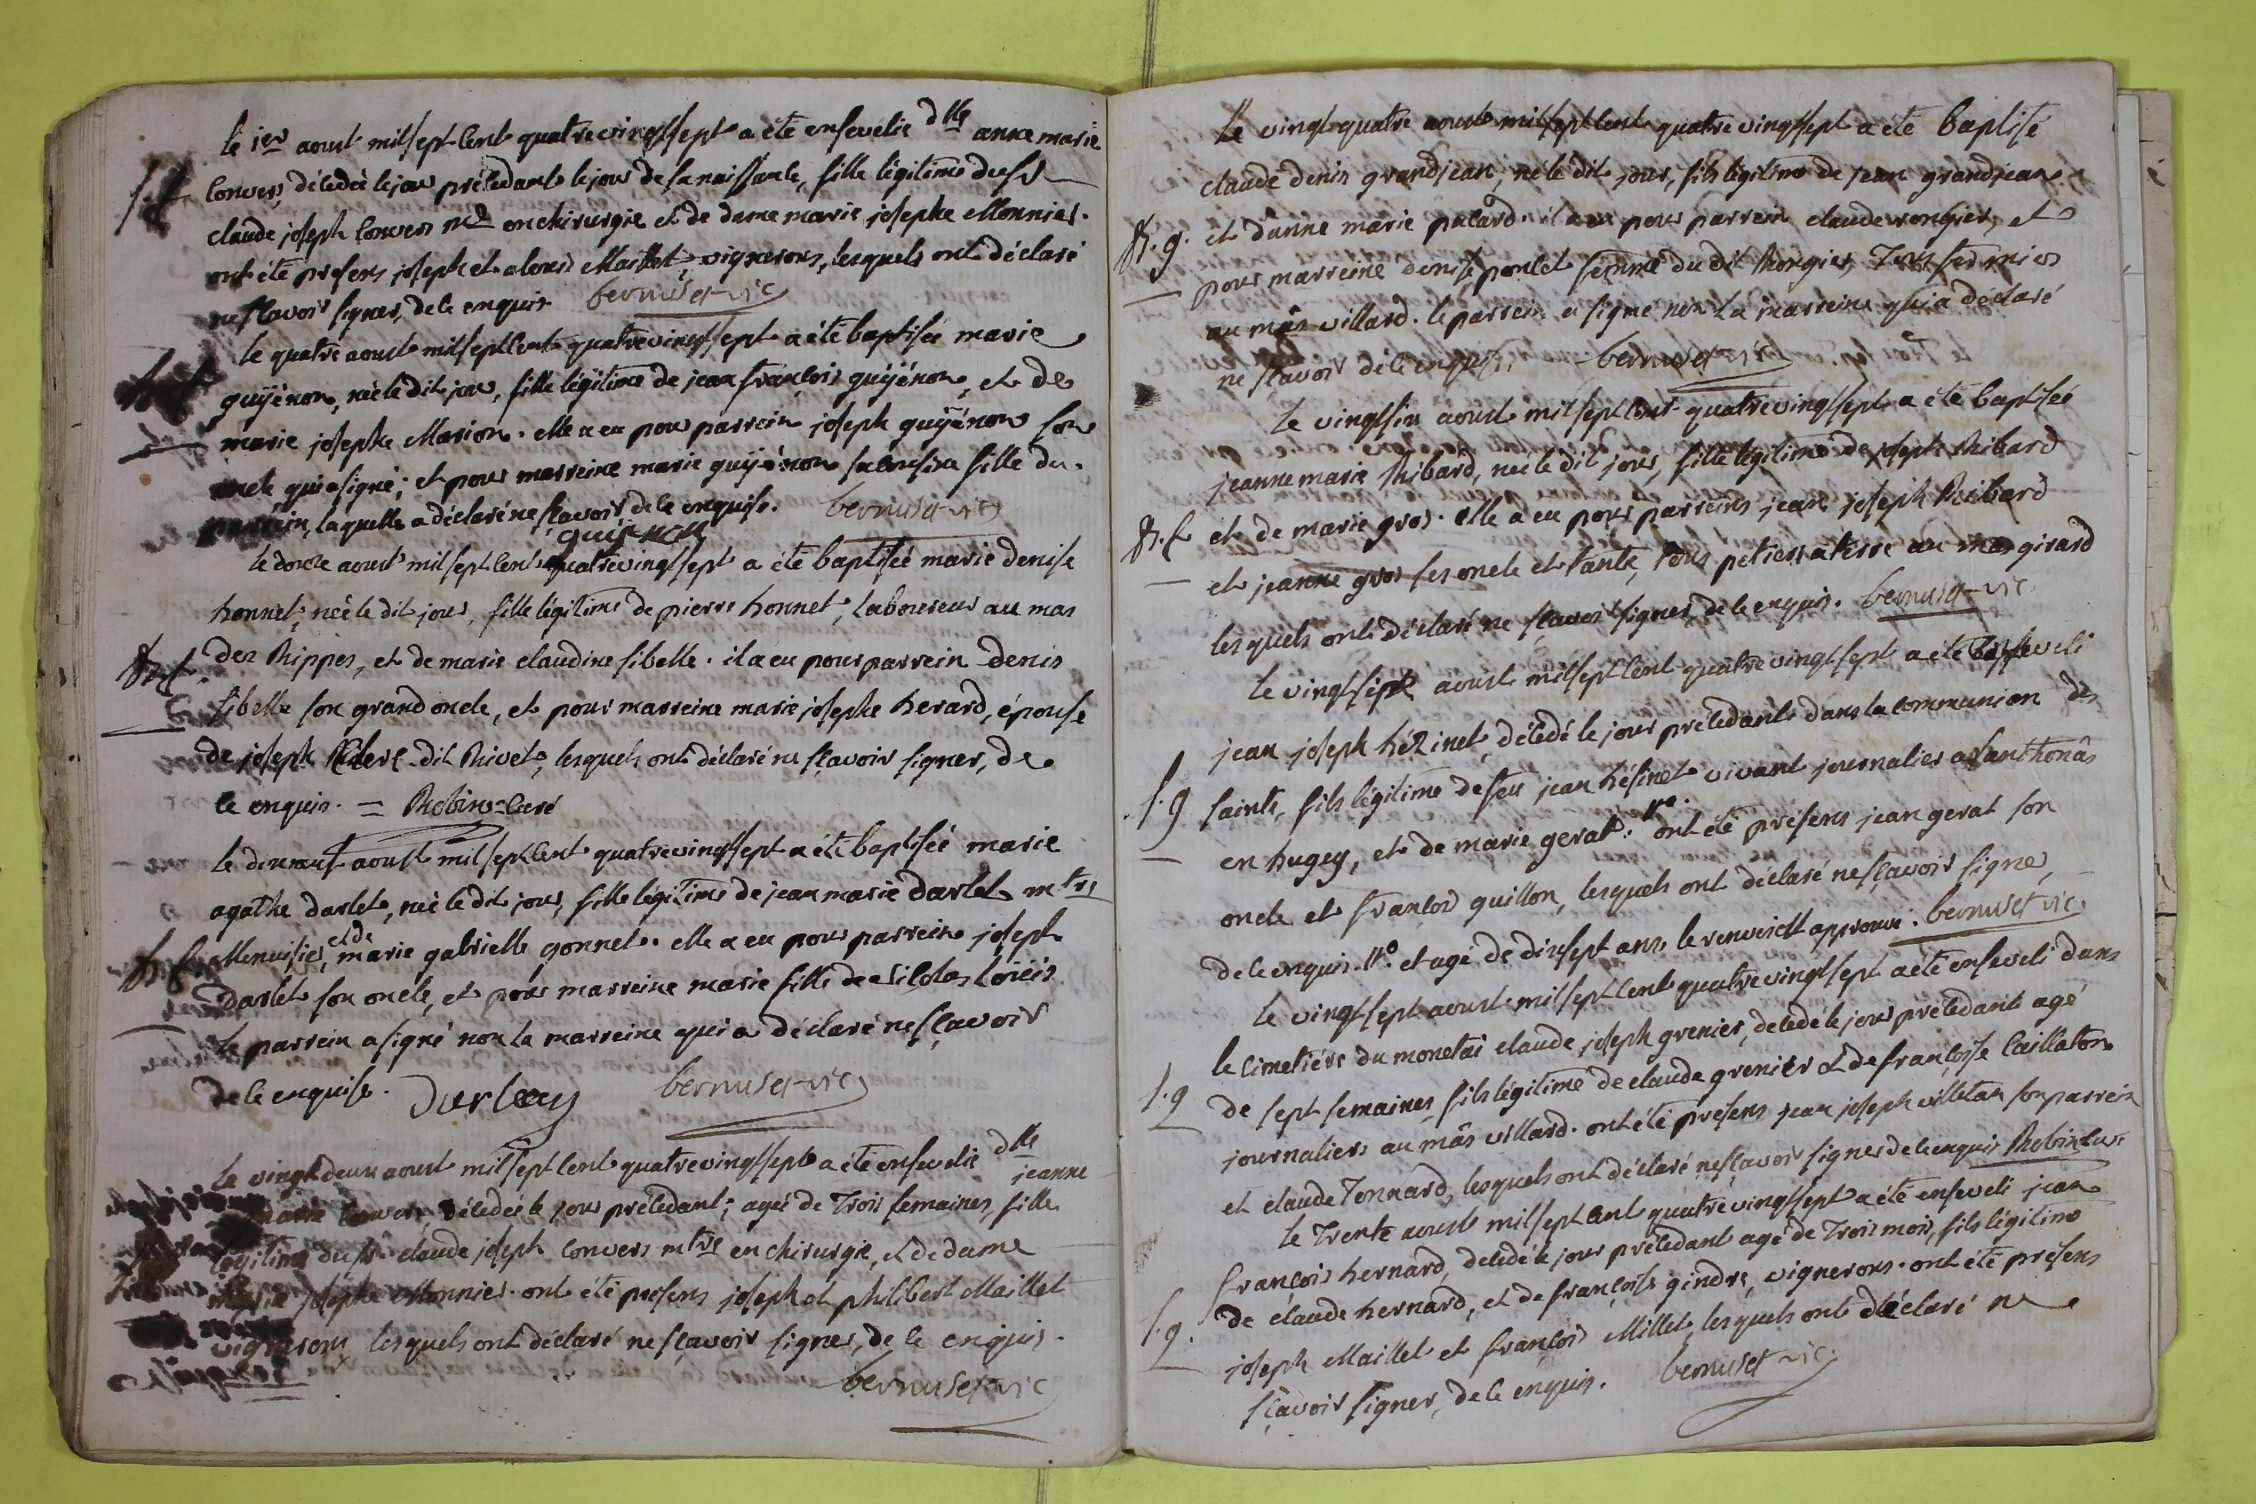 le 1er aoust mil sept cent quatre vingt sept a été ensevelie dlle anne marie
s.f. convers, décédée le jour précédant le jour de sa naissance, fille légitime du sr
claude joseph convers me en chirurgie et de dame marie josephe Monnier.
ont été presens joseph et alexis Maillet, vignerons, lesquels ont déclaré
ne sçavoir signer, de ce enquis bernuset vic
le quatre aoust mil sept cent quatre vingt sept a été baptisée marie
guyénon, née le dit jour, fille légitime de jean françois guyénon, et de
marie josephe Marion. elle a eu pour parrein joseph guyénon son
oncle qui a signé; et pour marreine marie guyénon sa cousine fille du
parrein, laquelle a déclaré ne sçavoir de ce enquise. bernuset vic
guyenon
le douze aoust mil sept cent quatre vingt sept a été baptisée marie denise
honnet, née le dit jour, fille légitime de pierre honnet, laboureur au mas
B.f. des Rippes, et de marie claudine sibelle. il a eu pour parrein denis
sibelle son grand oncle, et pour marreine marie josephe herard, épouse
de joseph dit Rivet, lesquels ont déclaré ne sçavoir signer, de
ce enquis. = Robin curé
le dixneuf aoust mil sept cent quatre vingt sept a été baptisée marie
agathe darlet, née le dit jour, fille légitime de jean marie darlet mtre
B.f. Menuisier, et de marie gabrielle gonnet. elle a eu pour parrein joseph
darlet son oncle, et pour marreine marie fille de Nicolas Loüis
le parrein a signé non la marreine qui a déclaré ne sçavoir
de ce enquise. Darlay bernuset vic
le vingt deux aoust mil sept cent quatre vingt sept a été ensevelie dlle jeanne
marie convers, décédée le jour précédant; agée de Trois semaines, fille
légitime du sr claude joseph convers mtre en chirurgie, et de dame
marie josephe Monnier. ont été presens joseph et philibert Maillet
vignerons lesquels ont déclaré ne sçavoir signer, de ce enquis.
bernuset vic
Le vingt quatre aoust mil sept cent quatre vingt sept a été baptisé
claude denis grandjean, né le dit jour, fils légitime de jean grandjean
B.g. et d'anne marie palard. il a eu pour parrein claude rongier, et
pour marreine denise poncet femme du dit Rongier, Tous fermiers
au mâs villard. le parrein a signé non la marreine qui a déclaré
ne sçavoir de ce enquise. bernuset vic
le vingt six aoust mil sept cent quatre vingt sept a été baptisée
jeanne marie Ribard, née le dit jour, fille légitime de joseph Ribard
B.f. et de marie gros. elle a eu pour parreins jean joseph Ribard
et jeanne gros ses oncle et tante, tous au mas girard
lesquels ont déclaré ne sçavoir signer, de ce enquis. bernuset vic
le vingt sept aoust mil sept cent quatre vingt sept a été enseveli
jean joseph hézinet, décédé le jour précédant dans la communion des
s.g saints, fils légitime de feu jean hésinet vivant journalier a Santhonas
en bugey, et de marie gerat. ont été présens jean gerat son
oncle et françois guillon, lesquels ont déclaré ne sçavoir signer,
de ce enquis. et agé de dixsept ans le renvoi est approuvé. bernuset vic
le vingt sept aoust mil sept cent quatre vingt sept a été enseveli dans
le cimetière du monetai claude joseph grenier, décédé le jour précédant agé
s.g de sept semaines, fils légitime de claude grenier et de françoise Caillaton
journaliers au mâs villard. ont été présens jean joseph villetan son parrein
et claude Tonnard, lesquels ont déclaré ne sçavoir signer de ce enquis Robin curé
le Trente aoust mil sept cent quatre vingt sept a été enseveli jean
françois hernard, décédé le jour précédant agé de Trois mois, fils légitime
s.g. de claude hernard, et de françoise gindre, vignerons. ont été présens
joseph Maillet et françois Millet, lesquels ont déclaré ne
sçavoir signer, de ce enquis. bernuset vic